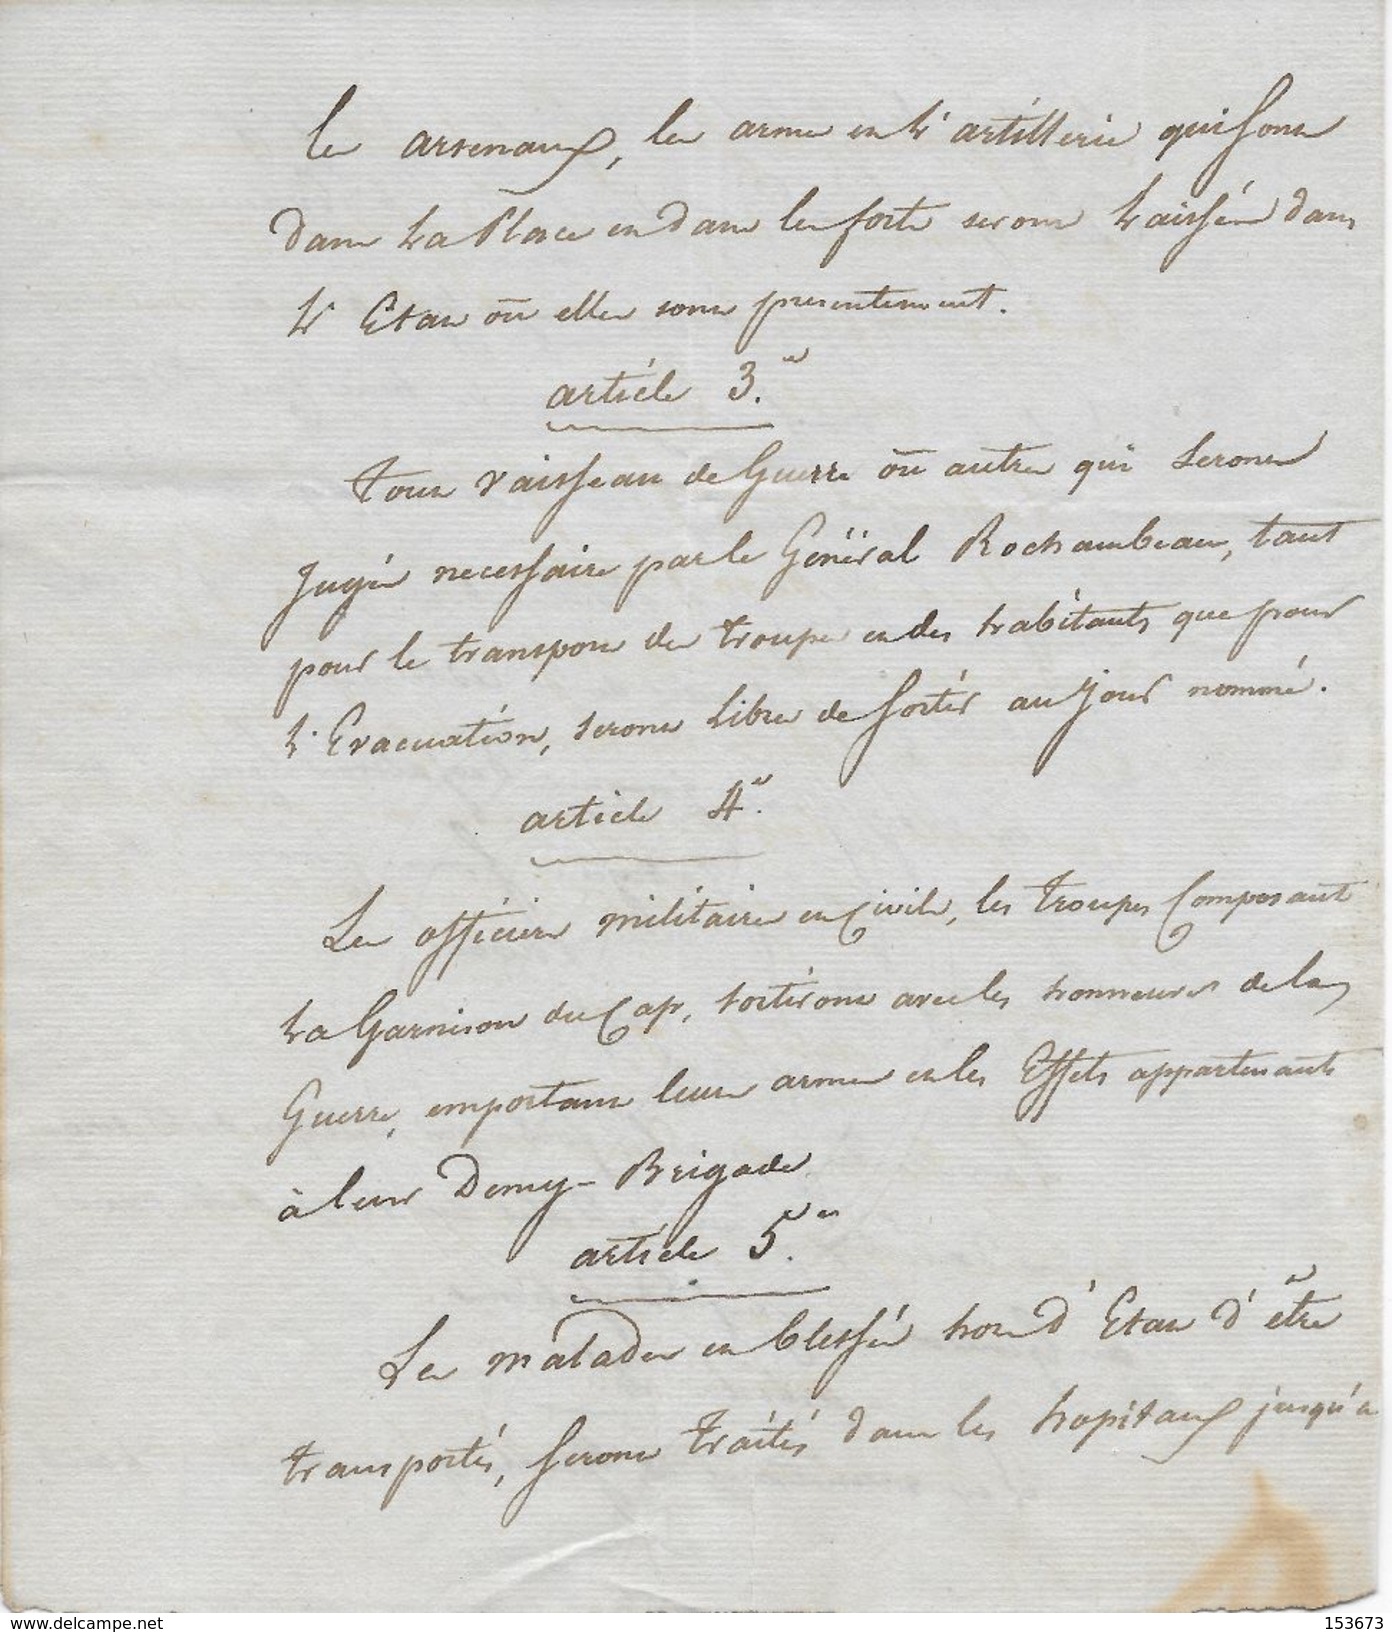 les arsenaux, les armes et l'artillerie qui sont
dans la Place et dans les forts seront laissés dans
l'Etat où elles sont presentement.
article 3.e
Tous Vaisseaux de Guerre ou autres qui seront
Jugés necessaire par le Général Rochambeau, tant
pour le transport des troupes et des habitants que pour
l'Evacuation, seront Libres de sortir au Jour nommé.
article 4.e
Les officiers militaires et Civils, les troupes Composant
La Garnison du Cap, sortiront avec les honneurs de la
Guerre, emportant leurs armes et les Effets appartenants
à leur Demy-Brigade
article 5.e
Les malades et blessés hors d'Etat d'être
transportés, seront traités dans les hopitaux jusqu'à
www.delcampe.net
153673